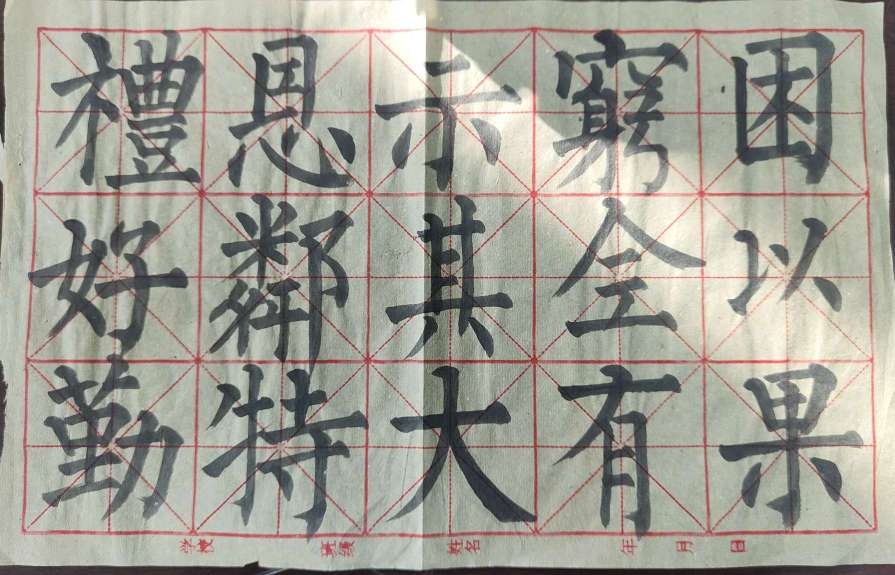 困以果
窮全有
示其大
恩鄰特
禮好勤
学校 班级 姓名 年 月 日